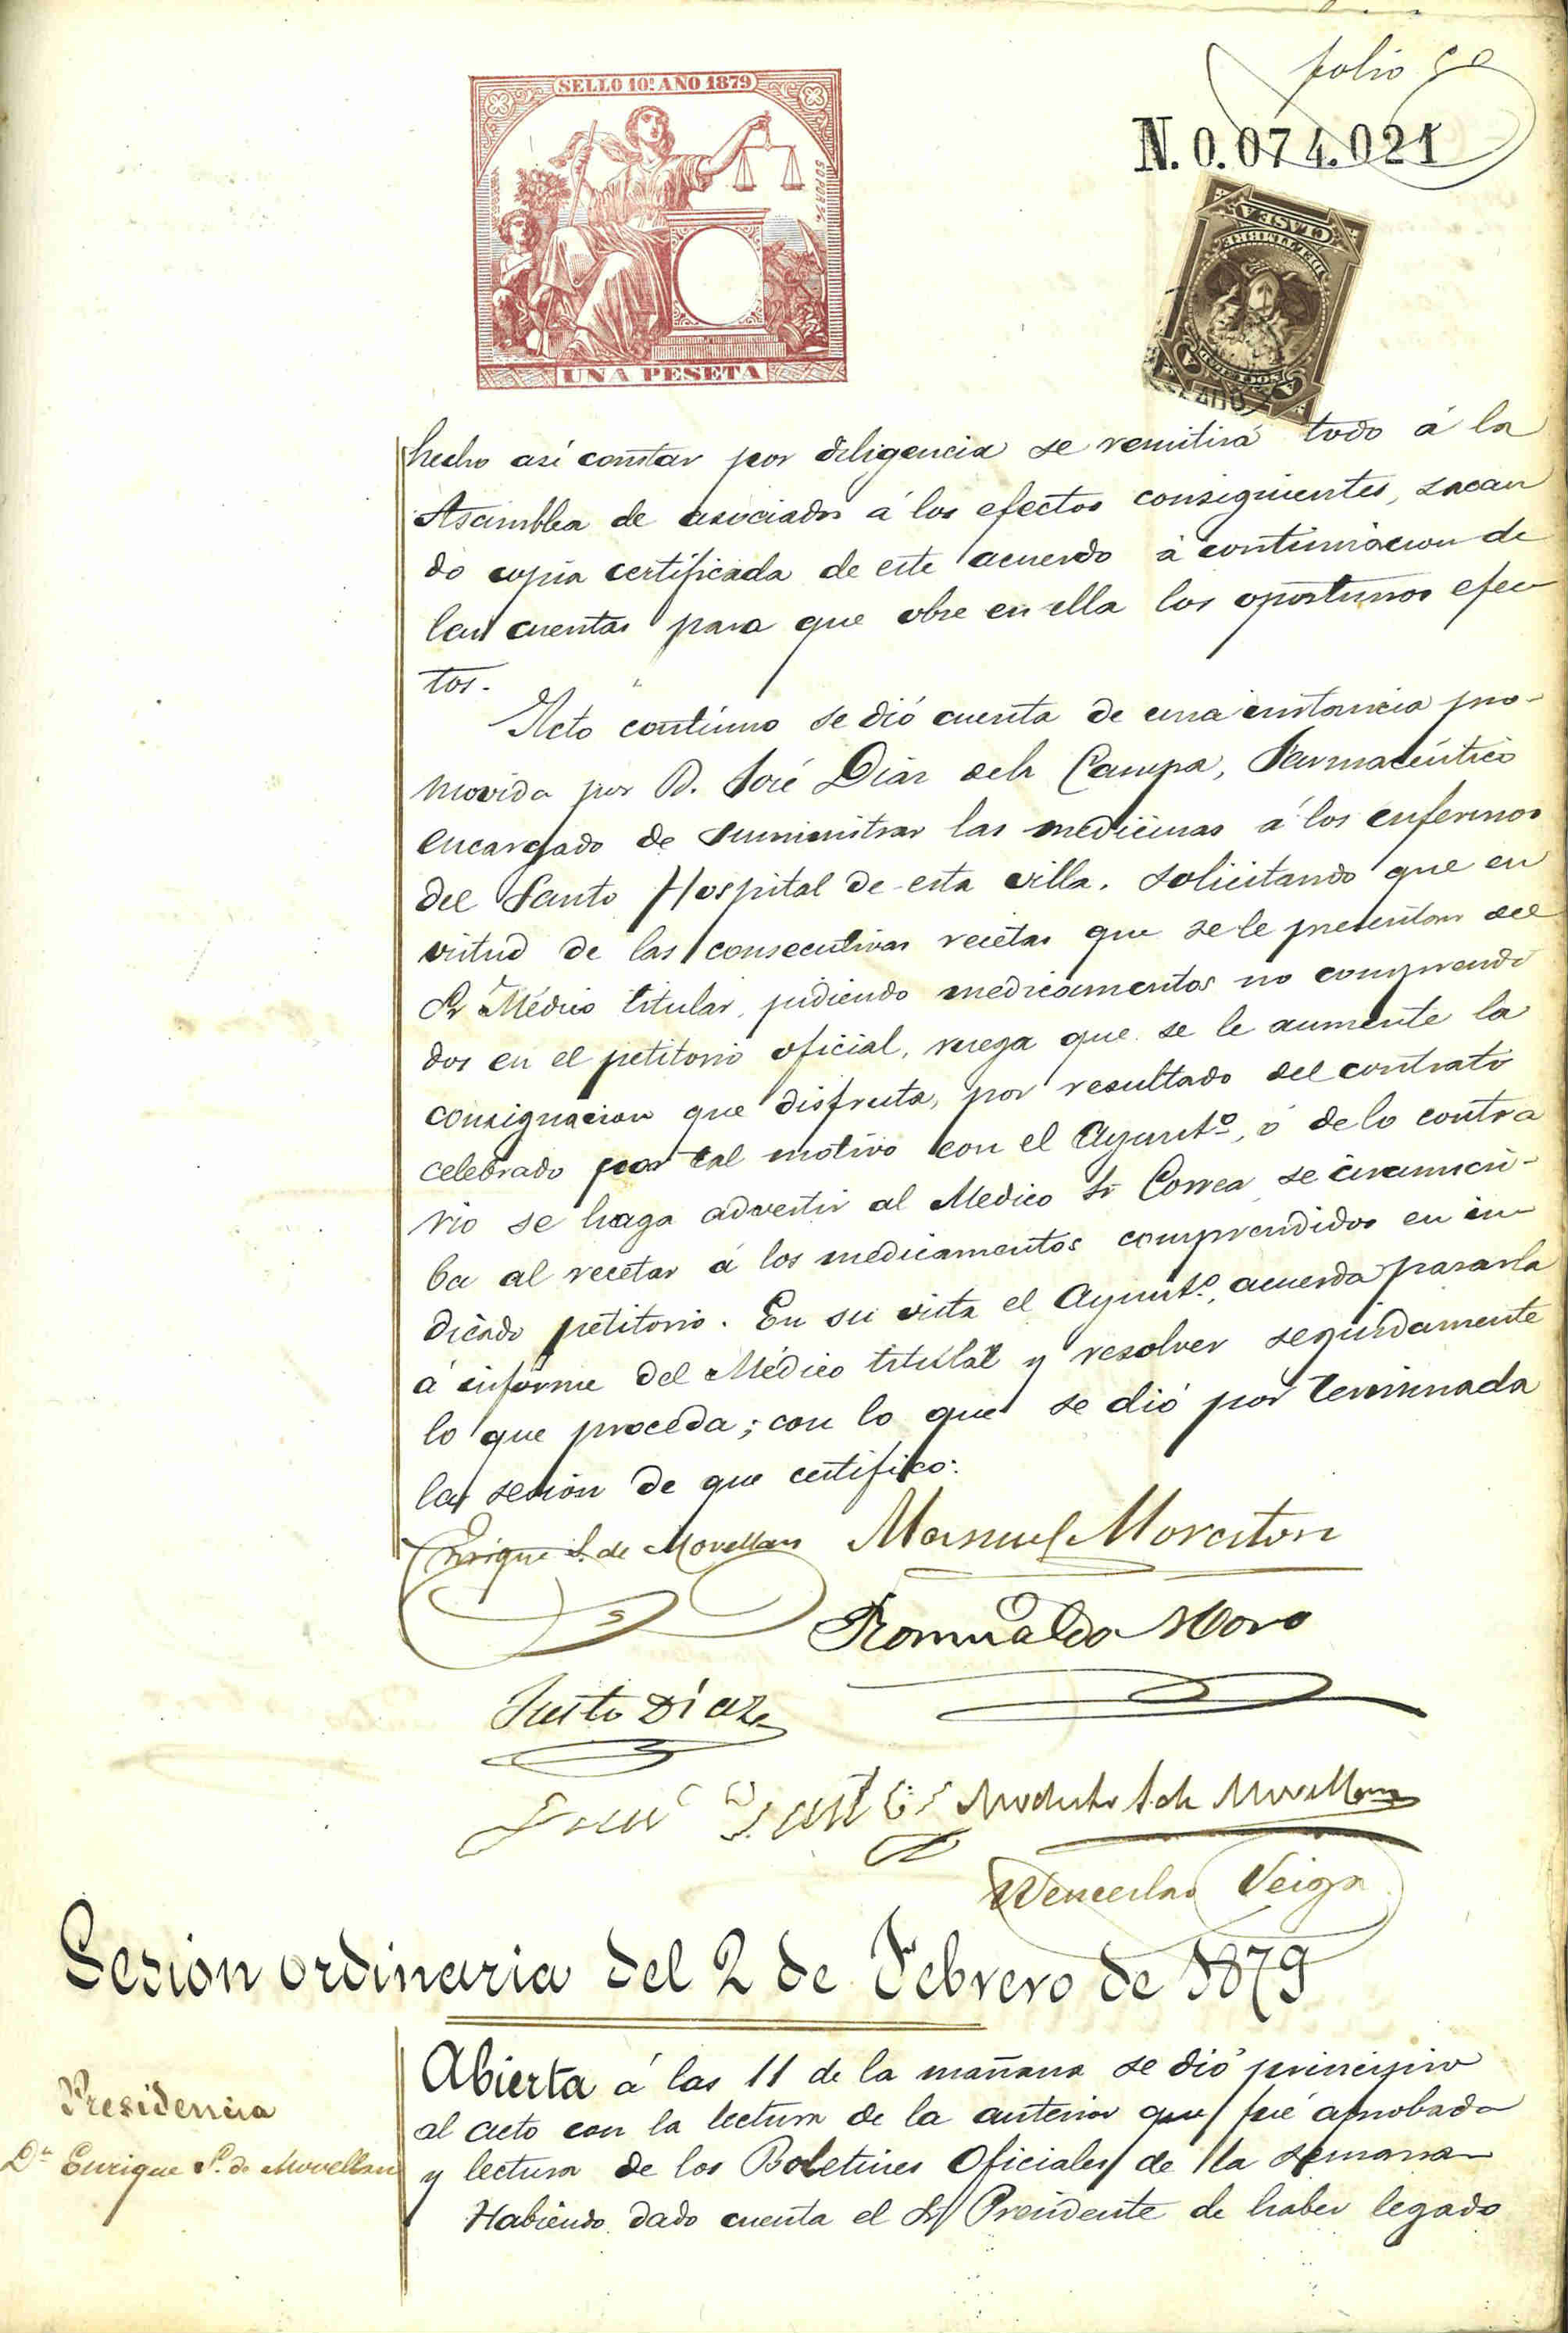 folio 50
SELLO 10º AÑO 1879
N. 0.074.021
UNA PESETA
hecho así constar por diligencia se remitirá todo á la
Asamblea de asociados á los efectos consiguientes, sacan
do copia certificada de este acuerdo á continuacion de
las cuentas para que obre en ella los oportunos efec
tos.
Acto contínuo se dió cuenta de una instancia pro-
movida por D. José Diaz dela Campa, Farmacéutico
encargado de suministrar las medicinas á los enfermos
del Santo Hospital de esta villa, solicitando que en
virtud de las consecutivas recetas que se le presentan del
Sr Médico titular, pidiendo medicamentos no comprendi
dos en el petitorio oficial, ruega que se le aumente la
consignacion que disfruta, por resultado del contrato
celebrado por tal motivo con el Ayuntº, ó de lo contra
rio se haga advertir al Medico Sr Correa se circunscri-
ba al recetar á los medicamentos comprendidos en in
dicado petitorio. En su vista el Ayuntº, acuerda pasarla
á informe del Médico titular y resolver seguidamente
lo que proceda; con lo que se dió por terminada
la sesion de que certifico:
Enrique S. de Movellan Manuel Moraton
Romualdo Moro
Justo Díaz
Modesto S. de Movellan
Wenceslao Veiga
Sesion ordinaria del 2 de Febrero de 1879
Presidencia
Dn Enrique S. de Movellan
Abierta á las 11 de la mañana se dió principio
al acto con la lectura de la anterior que fué aprobada
y lectura de los Boletines Oficiales de la semana
Habiendo dado cuenta el Sr Presidente de haber legado